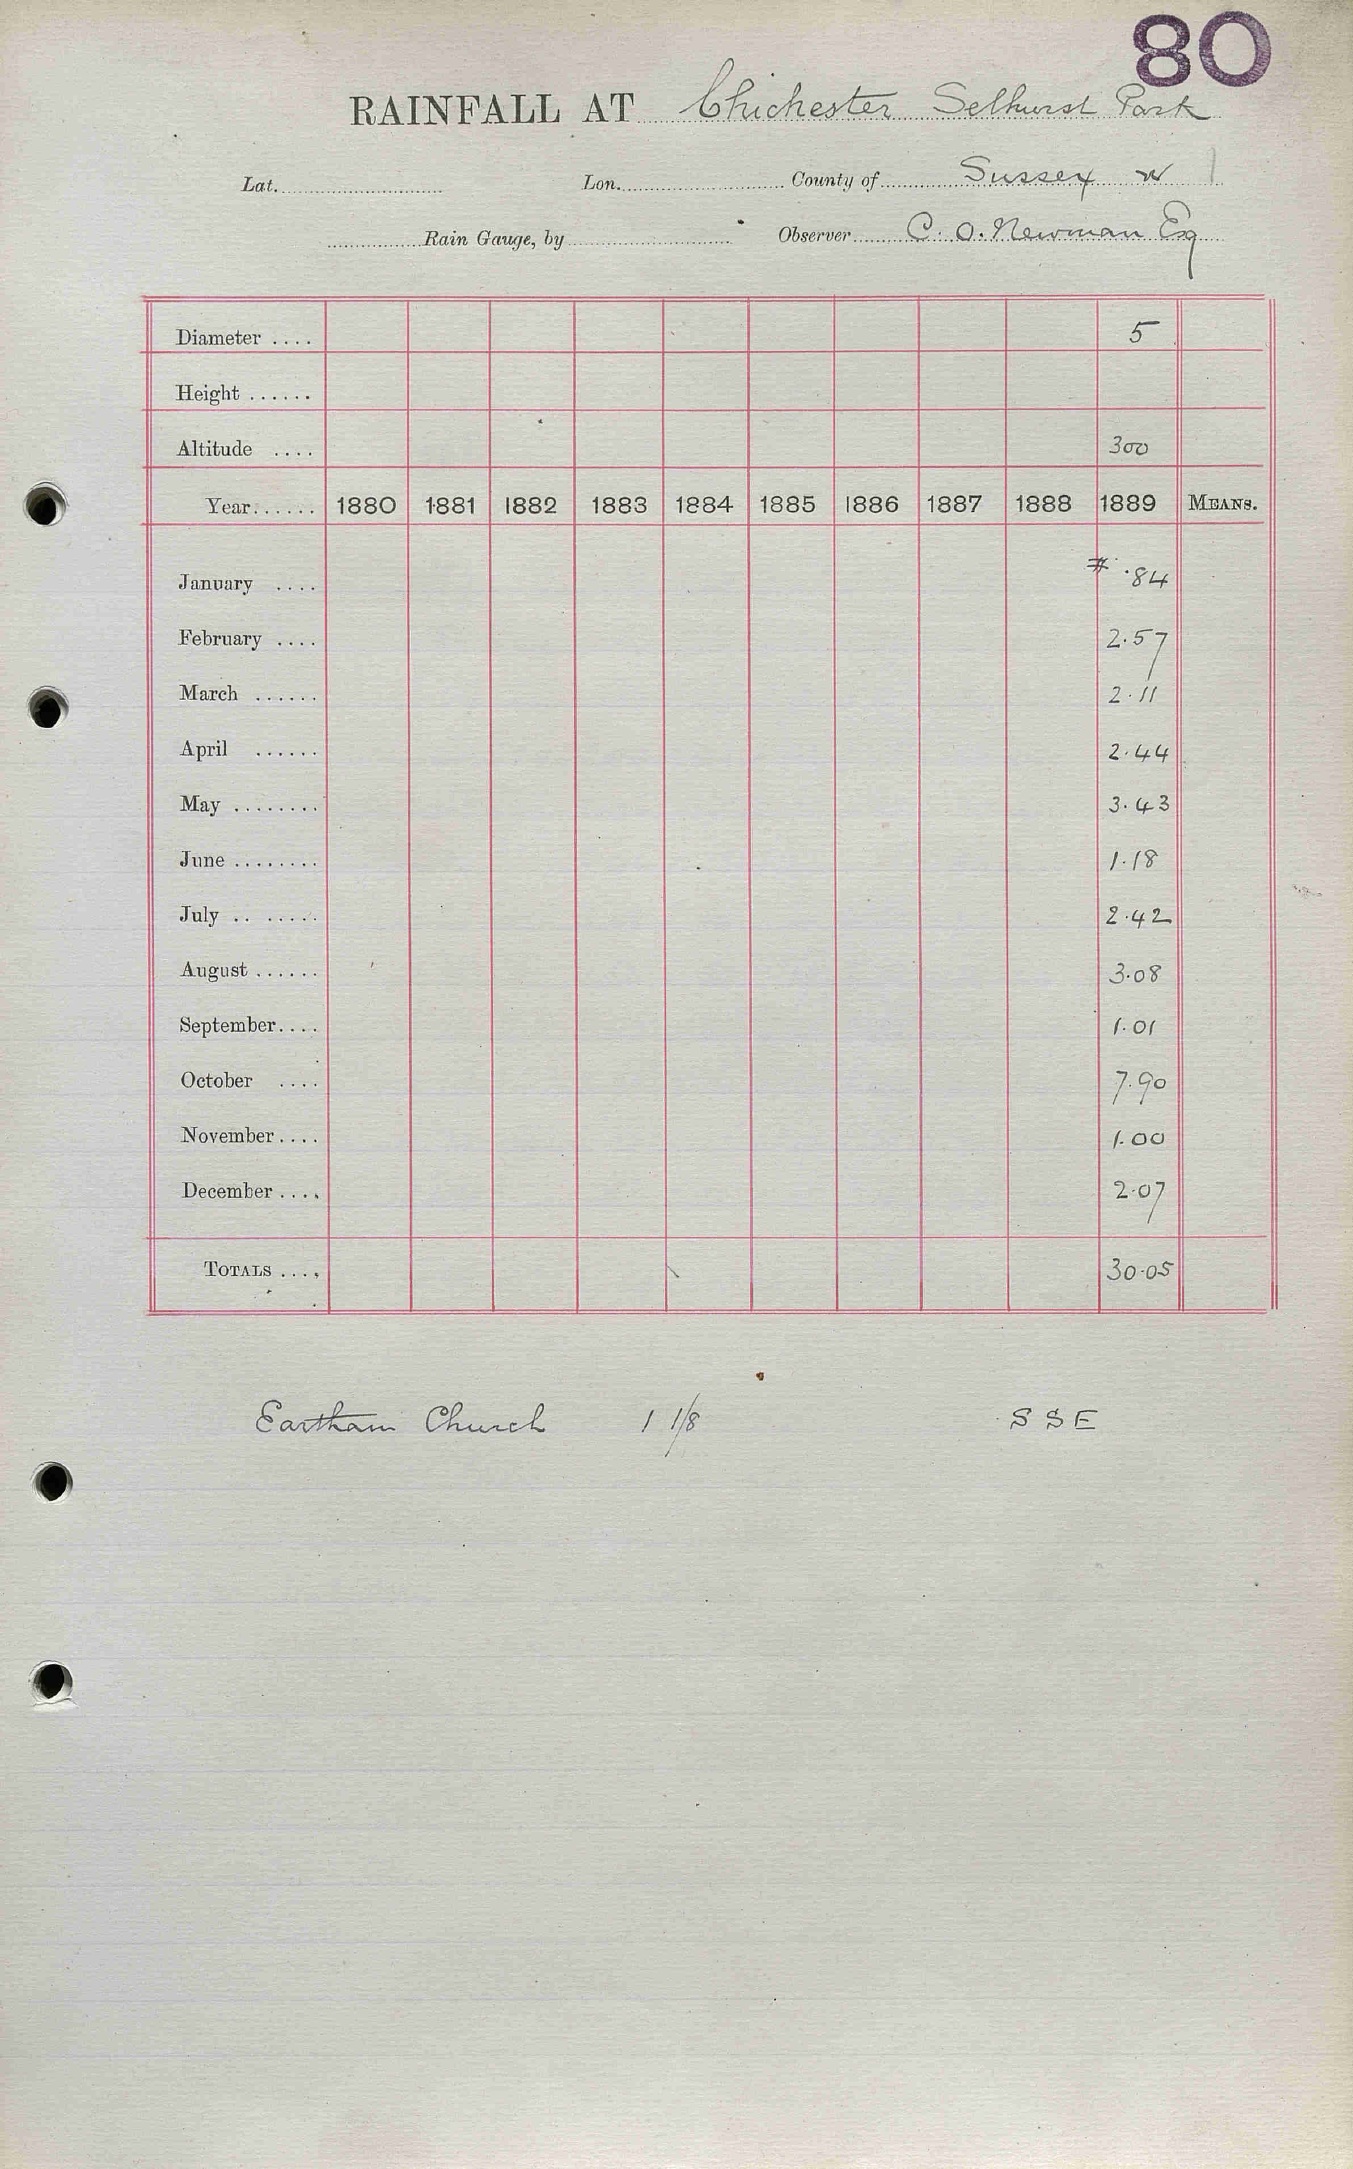 80
RAINFALL AT Chichester Selhurst Park
Lat. Lon. County of Sussex W
Rain Gauge, by Observer C. O. Newman Esq
Diameter .... 5
Height ......
Altitude .... 300
Year...... 1880 1881 1882 1883 1884 1885 1886 1887 1888 1889 MEANS.
January .... # .84
February .... 2.57
March ...... 2.11
April ...... 2.44
May ........ 3.43
June ........ 1.18
July .. ..... 2.42
August ...... 3.08
September.... 1.01
October .... 7.90
November.... 1.00
December .... 2.07
TOTALS .... 30.05
Eartham Church 1 1/8 SSE